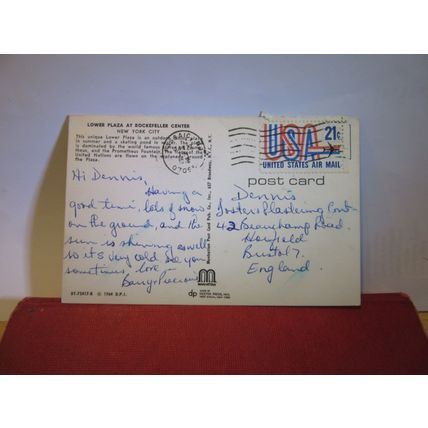 LOWER PLAZA AT ROCKEFELLER CENTER
NEW YORK CITY
This unique Lower Plaza is an outdoor
in summer and a skating pond in winter. The
is dominated by the world famous
and the Prometheus Fountain. The flags of the
United Nations are flown on the around
the Plaza.
Hi Dennis,
Having a
good time, lots of snow
on the ground, and the
sun is shining as well
so it's very cold See you
sometime, love
Barry
21c
USA
UNITED STATES AIR MAIL
post card
Dennis
Fosters Plastering Cont
42 Beauchamp Road.
Bristol 7.
England.
Manhattan Post Card Pub. Co., Inc.
MANHATTAN
dp
DEXTER PRESS, INC.
WEST NYACK, NEW YORK
© 1964 D.P.I.